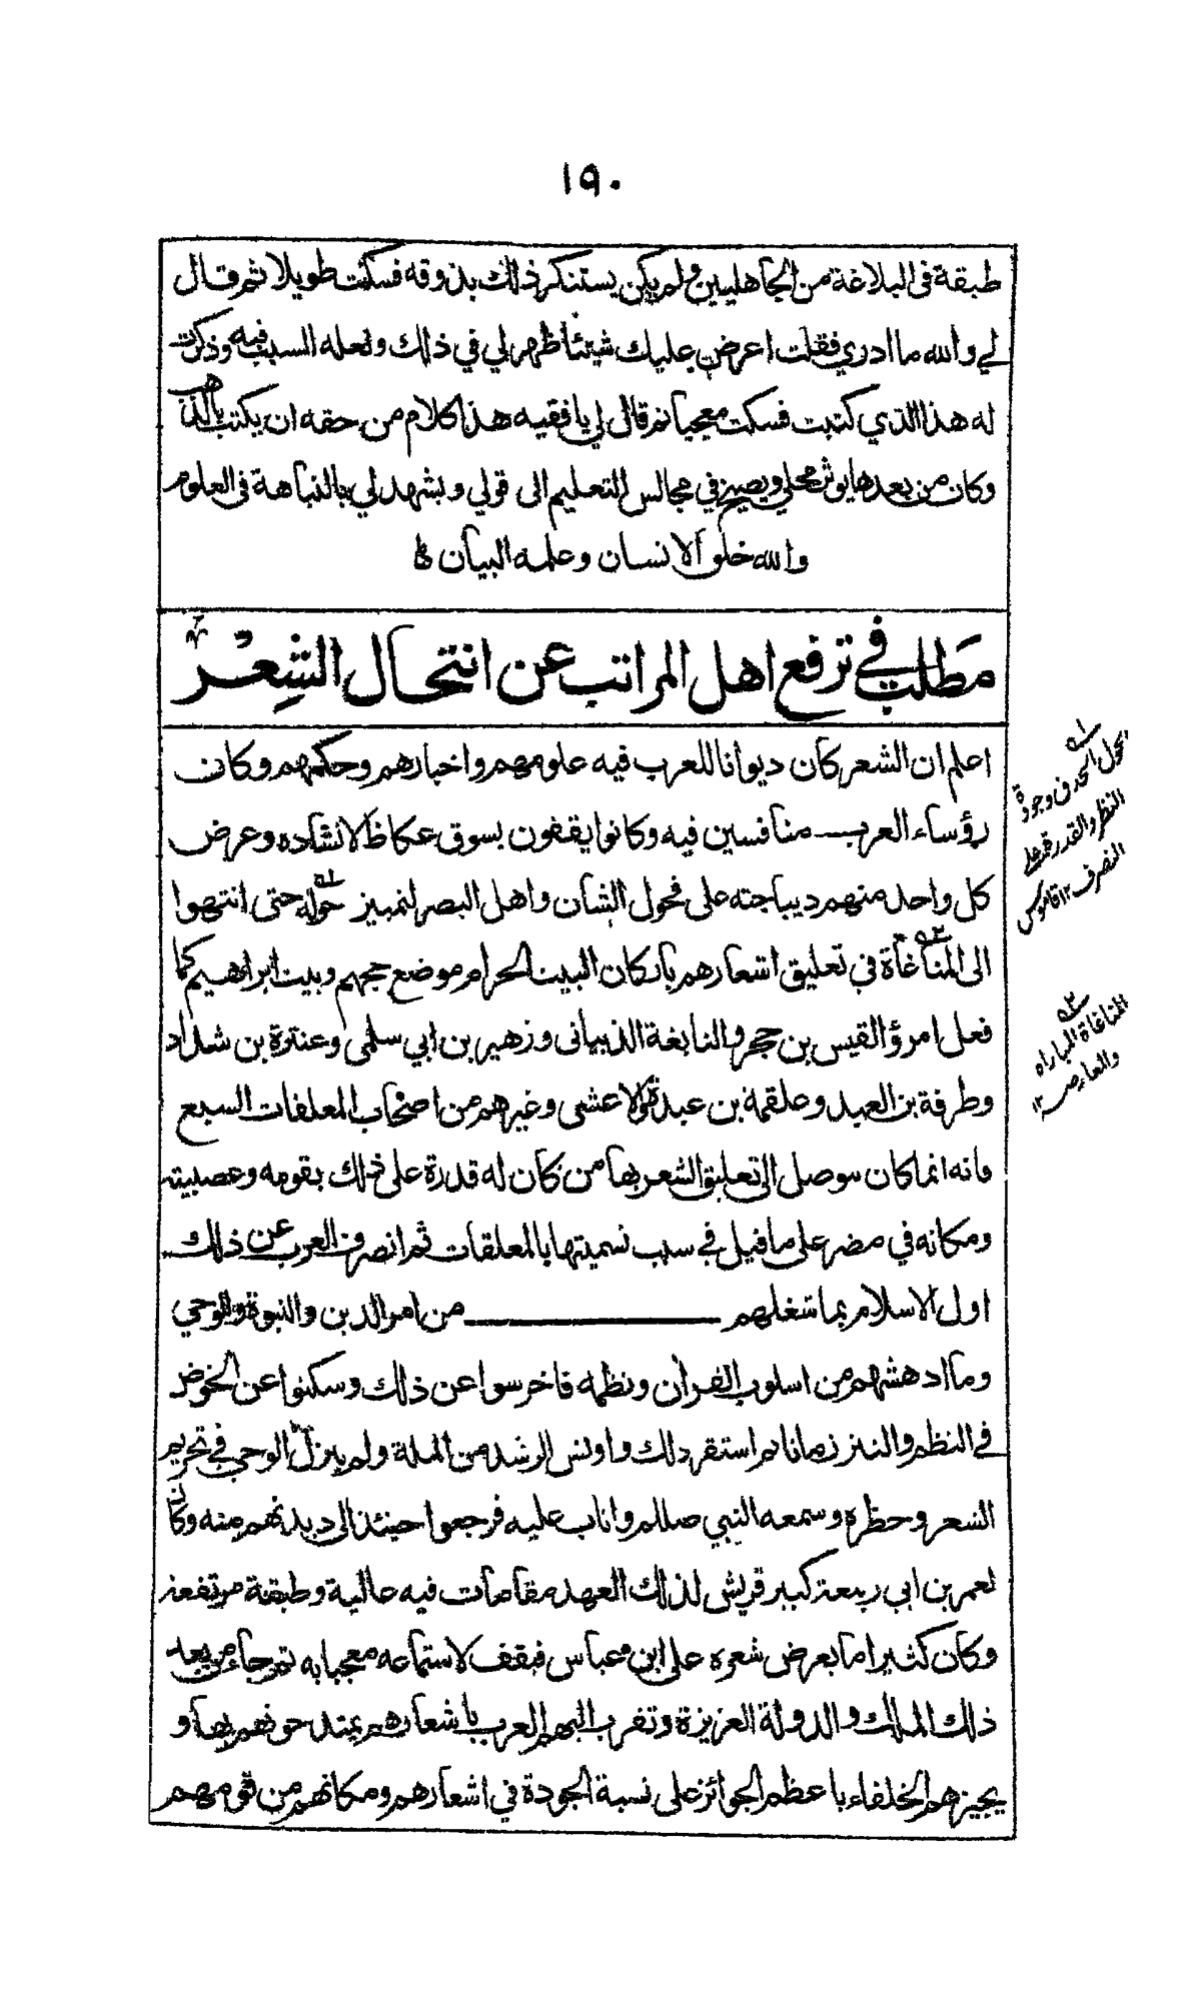 ١٩٠
طبقة في البلاغة من الجاهليين ولم يكن يستنكر ذلك بذوقه فسكت طويلا ثم قال
لي والله ما ادري فقلت اعرض عليك شيئا ظهر لي في ذلك ولعله السبب فيه وذكرت
له هذا الذي كتبت فسكت معجبا ثم قال لي يا فقيه هذا كلام من حقه ان يكتب بالذهب
وكان من بعدها يوثر محلي ويصيخ في مجالس التعليم الى قولي ويشهد لي بالنباهة في العلوم
والله خلق الانسان وعلمه البيان
مطلب في ترفع اهل المراتب عن انتحال الشعر
اعلم ان الشعر كان ديوانا للعرب فيه علومهم واخبارهم وحكمهم وكان
رؤساء العرب منافسين فيه وكانوا يقفون بسوق عكاظ لانشاده وعرض
كل واحد منهم ديباجته على فحول الشان واهل البصر لتمييز حوله حتى انتهوا
الى المناغاة في تعليق اشعارهم باركان البيت الحرام موضع حجهم وبيت ابراهيم كما
فعل امرؤ القيس بن حجر والنابغة الذبياني وزهير بن ابي سلمى وعنترة بن شداد
وطرفة بن العبد وعلقمة بن عبدة والاعشى وغيرهم من اصحاب المعلقات السبع
فانه انما كان يوصل الى تعليق الشعر بها من كان له قدرة على ذلك بقومه وعصبيته
ومكانه في مضر على ما قيل في سبب تسميتها بالمعلقات ثم انصرف العرب عن ذلك
اول الاسلام بما شغلهم من امر الدين والنبوة والوحي
وما ادهشهم من اسلوب القرآن ونظمه فاخرسوا عن ذلك وسكتوا عن الخوض
في النظم والنثر زمانا ثم استقر ذلك واونس الرشد من الملة ولم ينزل الوحي في تحريم
الشعر وحظره وسمعه النبي صللم واثاب عليه فرجعوا حينئذ الى ديدنهم منه وكان
لعمر بن ابي ربيعة كبير قريش لذلك العهد مقامات فيه عالية وطبقة مرتفعة
وكان كثيرا ما يعرض شعره على ابن عباس فيقف لاستماعه معجبا به ثم جاء من بعد
ذلك الملك والدولة العزيزة وتقرب اليهم العرب باشعارهم يمتدحونهم بها و
يجيزهم الخلفاء باعظم الجوائز على نسبة الجودة في اشعارهم ومكانهم من قومهم
الحول الحذق وجودة
النظر والقدرة على
التصرف ١٢ قاموس
المناغاة المباراه
والمعارض ١٢